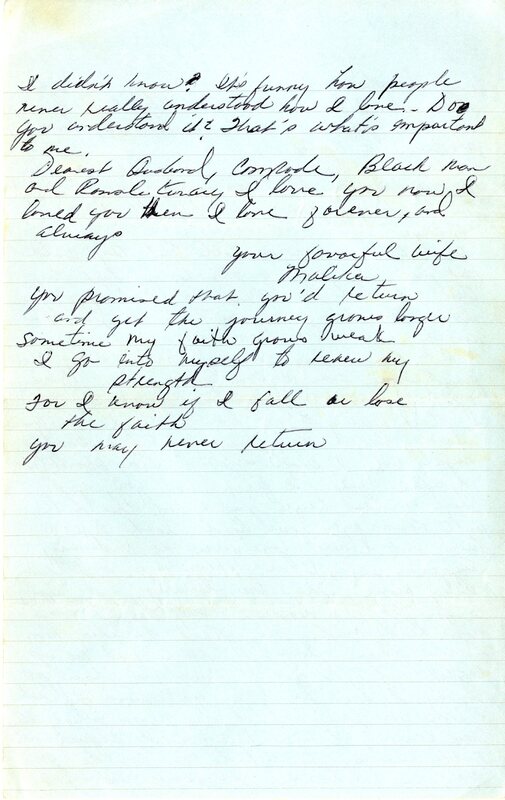 I didn't know? It's funny how people
never really understood how I love. Do
you understand it? That's what's important
to me.
Dearest Husband, Comrade, Black man
and Revolutionary, I love you now, I
loved you then I love forever, and
always
Your faithful wife
Malika
You promised that you'd return
and yet the journey grows longer
Sometime my faith grows weak
I go into myself to renew my
strength
For I know if I fall or lose
the faith
you may never return